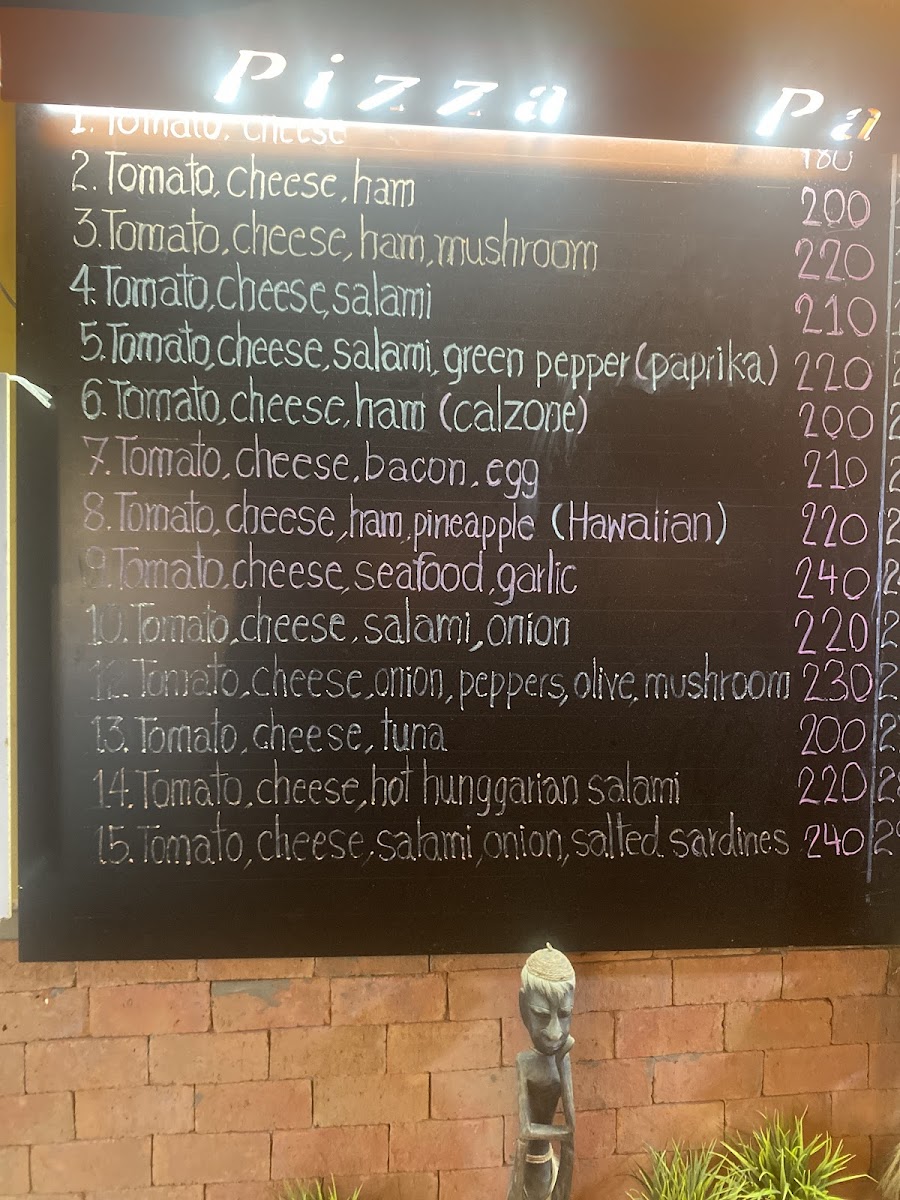 Pizza Pi
1. Tomato, cheese 180
2. Tomato, cheese, ham 200
3. Tomato, cheese, ham, mushroom 220
4. Tomato, cheese, salami 210
5. Tomato, cheese, salami, green pepper (paprika) 220
6. Tomato, cheese, ham (calzone) 200
7. Tomato, cheese, bacon, egg 210
8. Tomato, cheese, ham, pineapple (Hawaiian) 220
9. Tomato, cheese, seafood, garlic 240
10. Tomato, cheese, salami, onion 220
12. Tomato, cheese, onion, peppers, olive, mushroom 230
13. Tomato, cheese, tuna 200
14. Tomato, cheese, hot hunggarian salami 220
15. Tomato, cheese, salami, onion, salted sardines 240